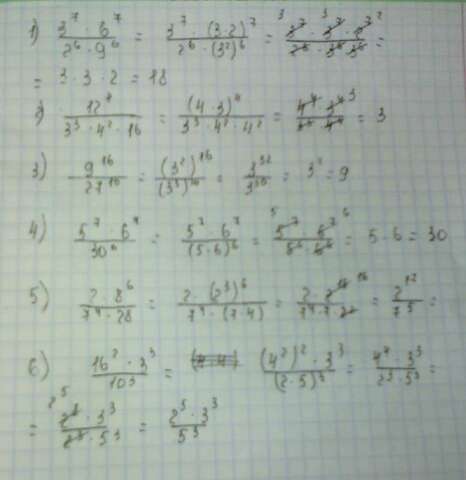 1) 3^7 · 6^7 / 2^6 · 9^6 = 3^7 · (3·2)^7 / 2^6 · (3^2)^6 = 3^7 · 3^7 · 2^7 / 2^6 · 3^6 · 3^6 =
= 3 · 3 · 2 = 18
2) 12^4 / 3^3 · 4^2 · 16 = (4·3)^4 / 3^3 · 4^2 · 4^2 = 4^4 · 3^4 / 3^3 · 4^4 = 3
3) 9^16 / 27^10 = (3^2)^16 / (3^3)^10 = 3^32 / 3^30 = 3^2 = 9
4) 5^7 · 6^7 / 30^6 = 5^7 · 6^7 / (5·6)^6 = 5^7 · 6^7 / 5^6 · 6^6 = 5 · 6 = 30
5) 2 · 8^6 / 7^4 · 28 = 2 · (2^3)^6 / 7^4 · (7·4) = = 2^17 / 7^5 =
6) 16^2 · 3^3 / 10^3 = (4^2)^2 · 3^3 / (2·5)^3 = 4^4 · 3^3 / 2^3 · 5^3 =
= 2^8 · 3^3 / 2^3 · 5^3 = 2^5 · 3^3 / 5^3